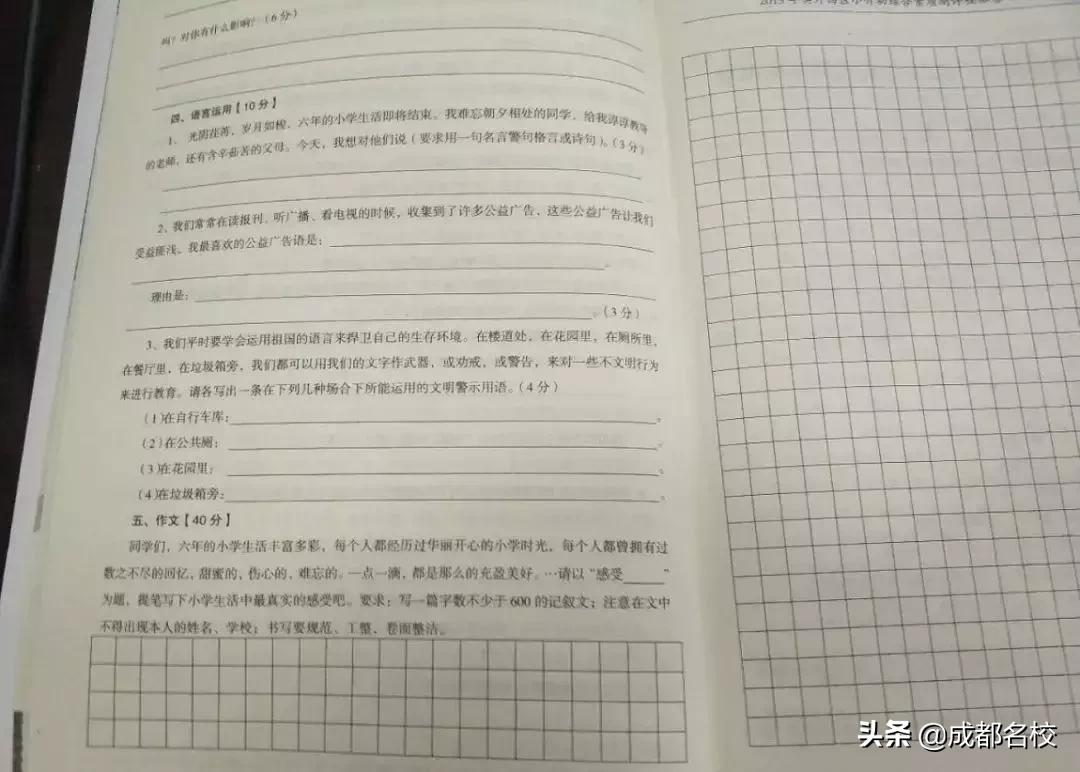 吗？对你有什么影响？（6分）
四、语言运用【10分】
1、光阴荏苒，岁月如梭，六年的小学生活即将结束。我难忘朝夕相处的同学，给我谆谆教导
的老师，还有含辛茹苦的父母。今天，我想对他们说（要求用一句名言警句格言或诗句）。（3分）
2、我们常常在读报刊、听广播、看电视的时候，收集到了许多公益广告，这些公益广告让我们
受益匪浅。我最喜欢的公益广告语是：
。
理由是：
。（3分）
3、我们平时要学会运用祖国的语言来捍卫自己的生存环境。在楼道处，在花园里，在厕所里，
在餐厅里，在垃圾箱旁，我们都可以用我们的文字作武器，或劝戒，或警告，来对一些不文明行为
来进行教育。请各写出一条在下列几种场合下所能运用的文明警示用语。（4分）
（1）在自行车库：。
（2）在公共厕：。
（3）在花园里：。
（4）在垃圾箱旁：。
五、作文【40分】
同学们，六年的小学生活丰富多彩，每个人都经历过华丽开心的小学时光，每个人都曾拥有过
数之不尽的回忆，甜蜜的，伤心的，难忘的。一点一滴，都是那么的充盈美好。…请以“感受____”
为题，提笔写下小学生活中最真实的感受吧。要求：写一篇字数不少于600的记叙文；注意在文中
不得出现本人的姓名、学校；书写要规范、工整、卷面整洁。
头条 @成都名校